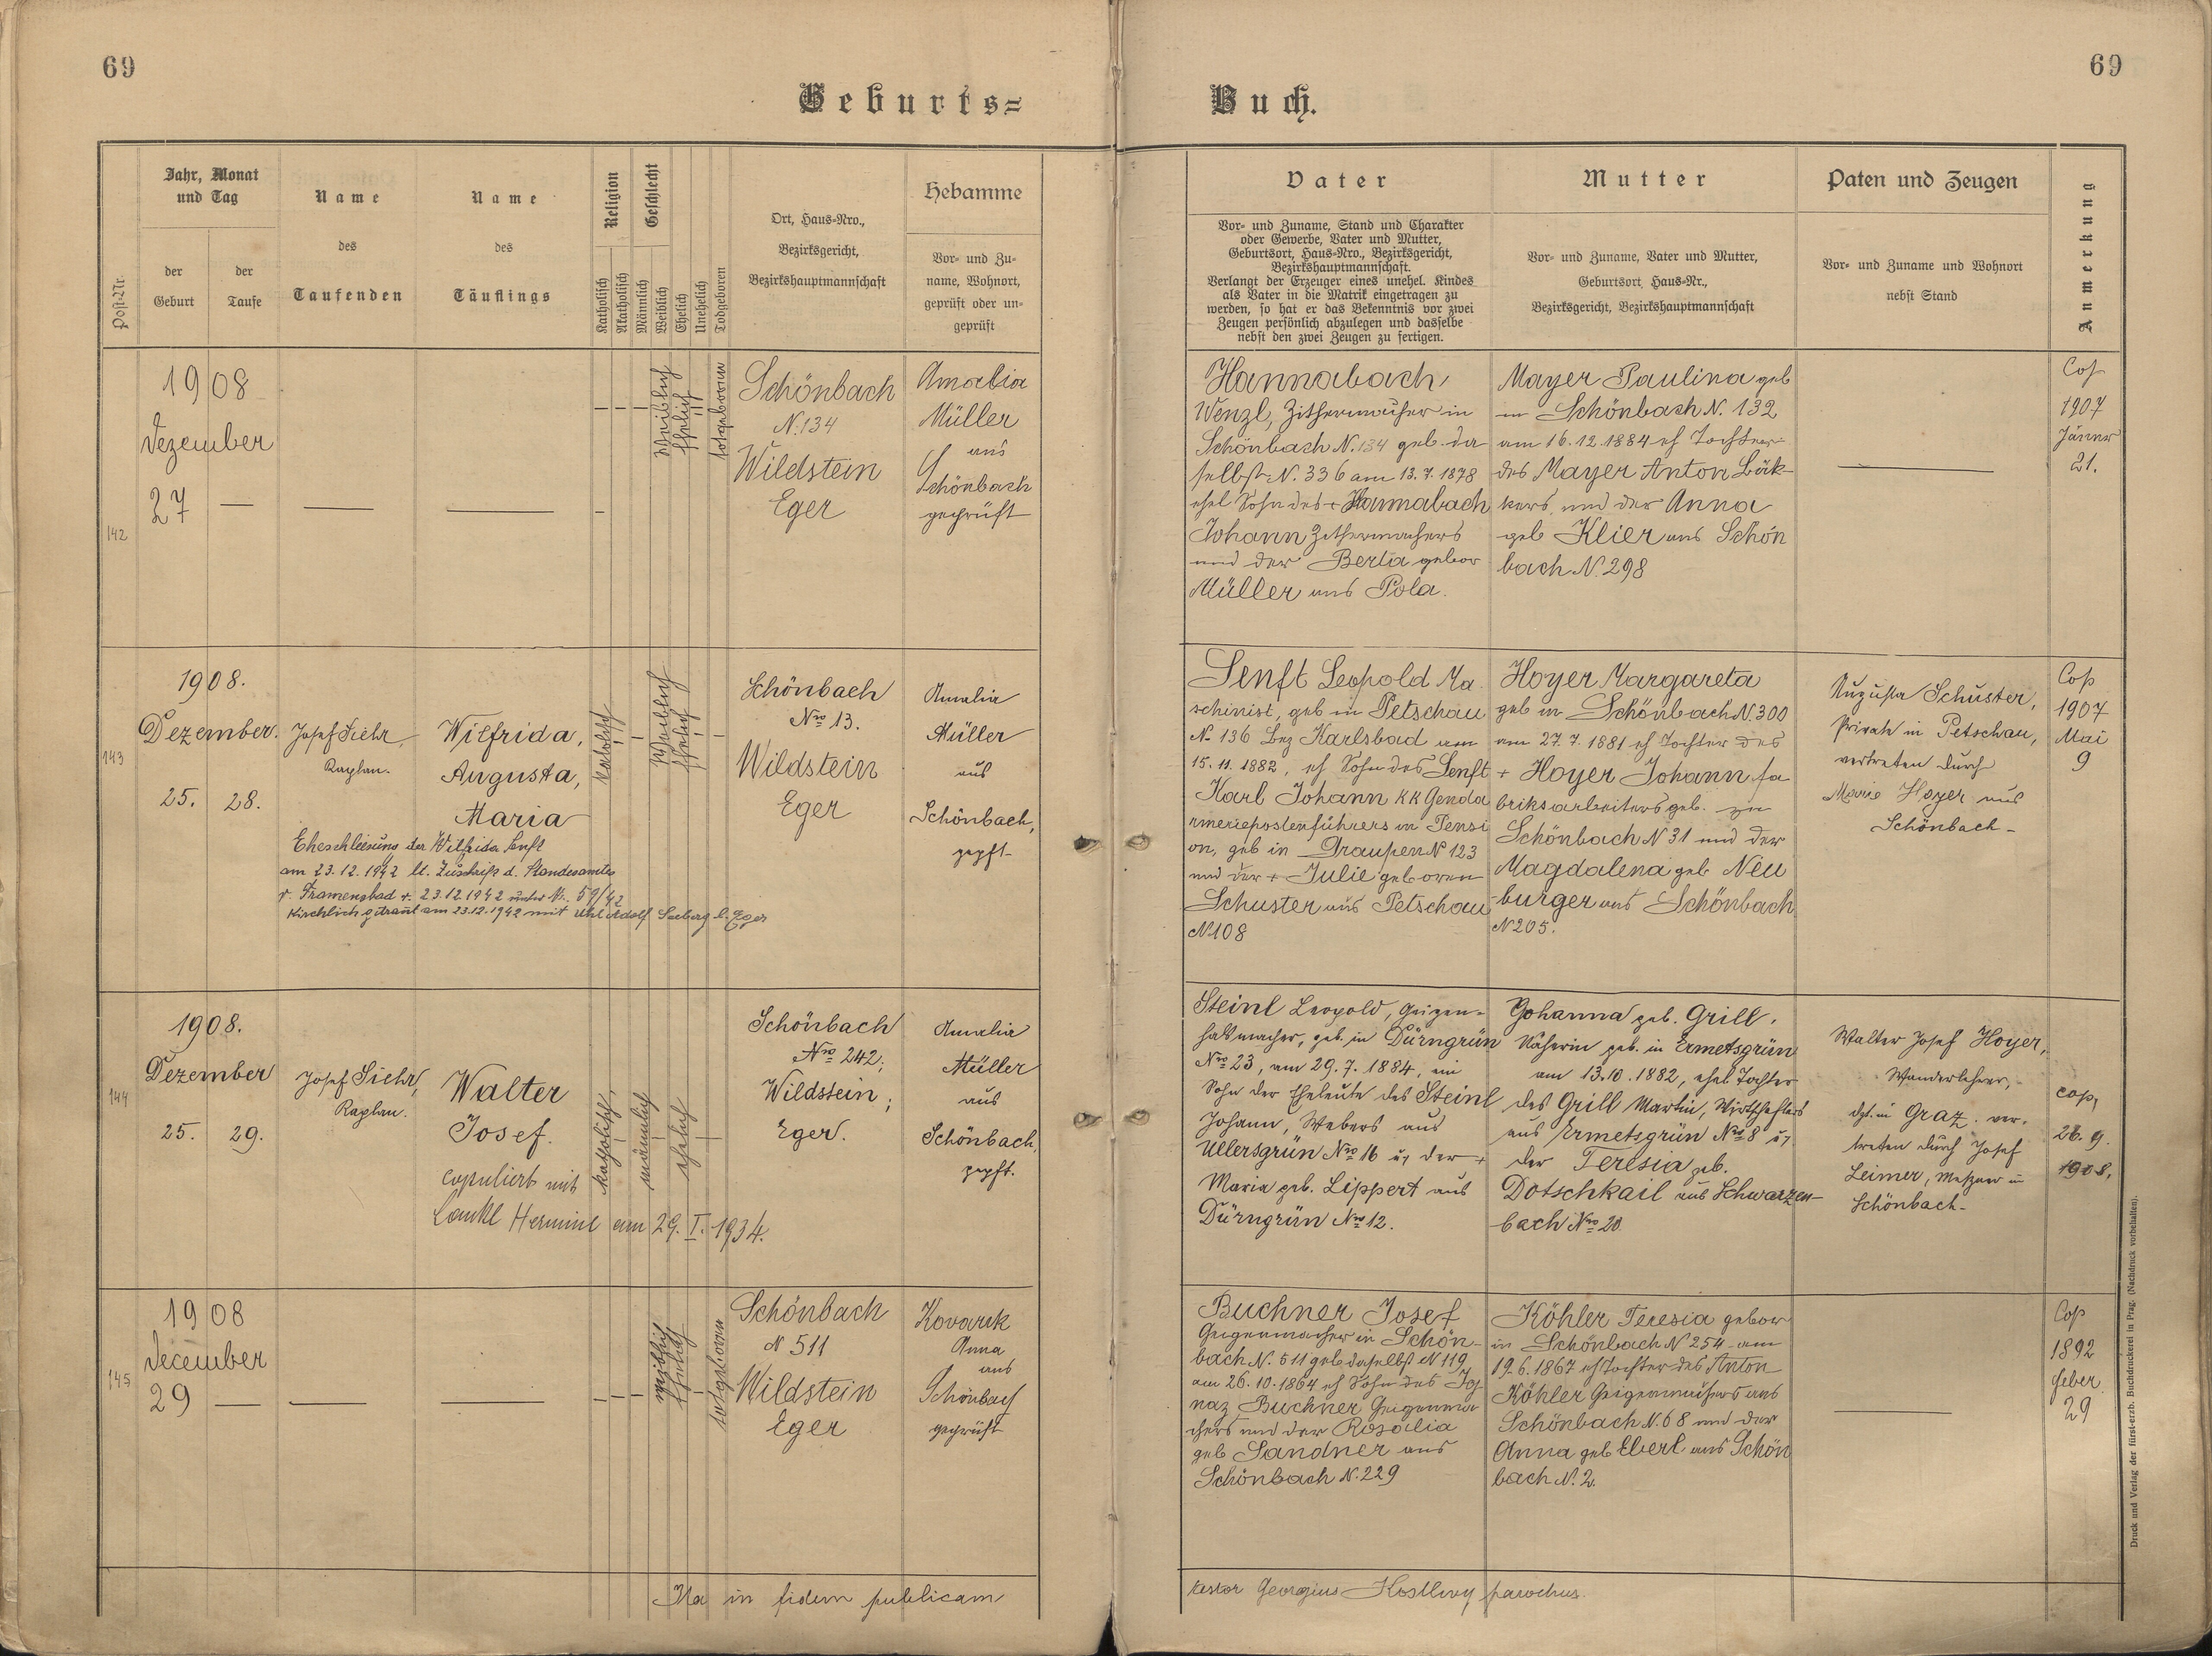 69
69
Geburts=
Buch.
Post-Nr.
Jahr, Monat
und Tag
der
Geburt
der
Taufe
Name
des
Taufenden
Name
des
Täuflings
Religion
Katholisch
Akatholisch
Geschlecht
Männlich
Weiblich
Ehelich
Unehelich
Todgeboren
Ort, Haus-Nro.,
Bezirksgericht,
Bezirkshauptmannschaft
Hebamme
Vor- und Zu-
name, Wohnort,
geprüft oder un-
geprüft
Vater
Vor- und Zuname, Stand und Charakter
oder Gewerbe, Vater und Mutter,
Geburtsort, Haus-Nro., Bezirksgericht,
Bezirkshauptmannschaft.
Verlangt der Erzeuger eines unehel. Kindes
als Vater in die Matrik eingetragen zu
werden, so hat er das Bekenntnis vor zwei
Zeugen persönlich abzulegen und dasselbe
nebst den zwei Zeugen zu fertigen.
Mutter
Vor- und Zuname, Vater und Mutter,
Geburtsort, Haus-Nr.,
Bezirksgericht, Bezirkshauptmannschaft
Paten und Zeugen
Vor- und Zuname und Wohnort
nebst Stand
Anmerkung
142
1908
Dezember
27
weiblich
ehelich
totgeboren
Schönbach
N. 134
Wildstein
Eger
Amalia
Müller
aus
Schönbach
geprüft
Hannabach
Wenzl, Zithermacher in
Schönbach N. 134 geb. da
selbst N. 336 am 13.7.1878
ehel Sohn des + Hannabach
Johann Zithermachers
und der Berta gebor
Müller aus Pola.
Mayer Paulina geb
in Schönbach N. 132
am 16.12.1884 eh Tochter
des Mayer Anton Bäk-
kers und der Anna
geb Klier aus Schön
bach N. 298
Cop
1907
Jänner
21.
143
1908.
Dezember.
25. 28.
Josef Siehr,
Kaplan.
Wilfrida,
Augusta,
Maria
Eheschliesung der Wilfrida Senft
am 23.12.1942 lt. Zuschrift d. Standesamtes
v. Franzensbad v. 23.12.1942 unter Nr. 59/42
Kirchlich getraut am 23.12.1942 mit Uhl Adolf Seeberg b. Eger
katholisch
weiblich
ehelich
Schönbach
Nro 13.
Wildstein
Eger
Amalia
Müller
aus
Schönbach,
gepft.
Senft Leopold Ma
schinist, geb in Petschau
N. 136 Bez Karlsbad am
15.11.1882, eh Sohn des Senft
Karl Johann KK Genda
rmeriepostenführers in Pensi
on, geb in Graupen N 123
und der + Julie geboren
Schuster aus Petschau
N 108
Hoyer Margareta
geb in Schönbach N. 300
am 27.7.1881 eh Tochter des
+ Hoyer Johann fa
briksarbeiters geb. zu
Schönbach N 31 und der
Magdalena geb Neu
burger aus Schönbach
N 205.
Augusta Schuster,
Private in Petschau,
vertreten durch
Marie Hoyer aus
Schönbach-
Cop
1907
Mai
9
144
1908.
Dezember
25. 29.
Josef Siehr,
Kaplan.
Walter
Josef.
copuliert mit
Hermine am 29. I. 1934.
katholisch
männlich
ehelich
Schönbach
Nro 242;
Wildstein;
Eger.
Amalia
Müller
aus
Schönbach,
gepft.
Steinl Leopold, Geigen-
halsmacher, geb. in Dürngrün
Nro 23, am 29.7.1884, ein
Sohn der Eheleute des Steinl
Johann, Webers aus
Ullersgrün Nro 16 u. der +
Maria geb. Lippert aus
Dürngrün Nro 12.
Johanna geb. Grill,
Näherin geb. in Ermetsgrün
am 13.10.1882, ehel. Tochter
des Grill Martin, Wirtschafters
aus Ermetsgrün Nro 8 u.
der Teresia geb.
Dotschkail aus Schwarzen-
bach Nro 20.
Walter Josef Hoyer,
Wanderlehrer,
dzt. in Graz, ver-
treten durch Josef
Leimer, Metzger in
Schönbach-
cop.
26.9.
1908.
145
1908
December
29
weiblich
ehelich
totgeboren
Schönbach
N 511
Wildstein
Eger
Kovarik
Anna
aus
Schönbach
geprüft
Buchner Josef
Geigenmacher in Schön-
bach N. 511 geb daselbst N 119
am 26.10.1864 eh Sohn des Ig-
naz Buchner Geigenma
chers und der Rosalia
geb Sandner aus
Schönbach N. 229
Köhler Teresia gebor
in Schönbach N 254 am
19.6.1867 eh Tochter des Anton
Köhler Geigenmachers aus
Schönbach N. 68 und der
Anna geb Eberl aus Schön
bach N. 2.
Cop
1892
Feber
29
Ita in fidem publicam
testor Georgius parochus.
Druck und Verlag der fürst-erzb. Buchdruckerei in Prag. (Nachdruck vorbehalten).